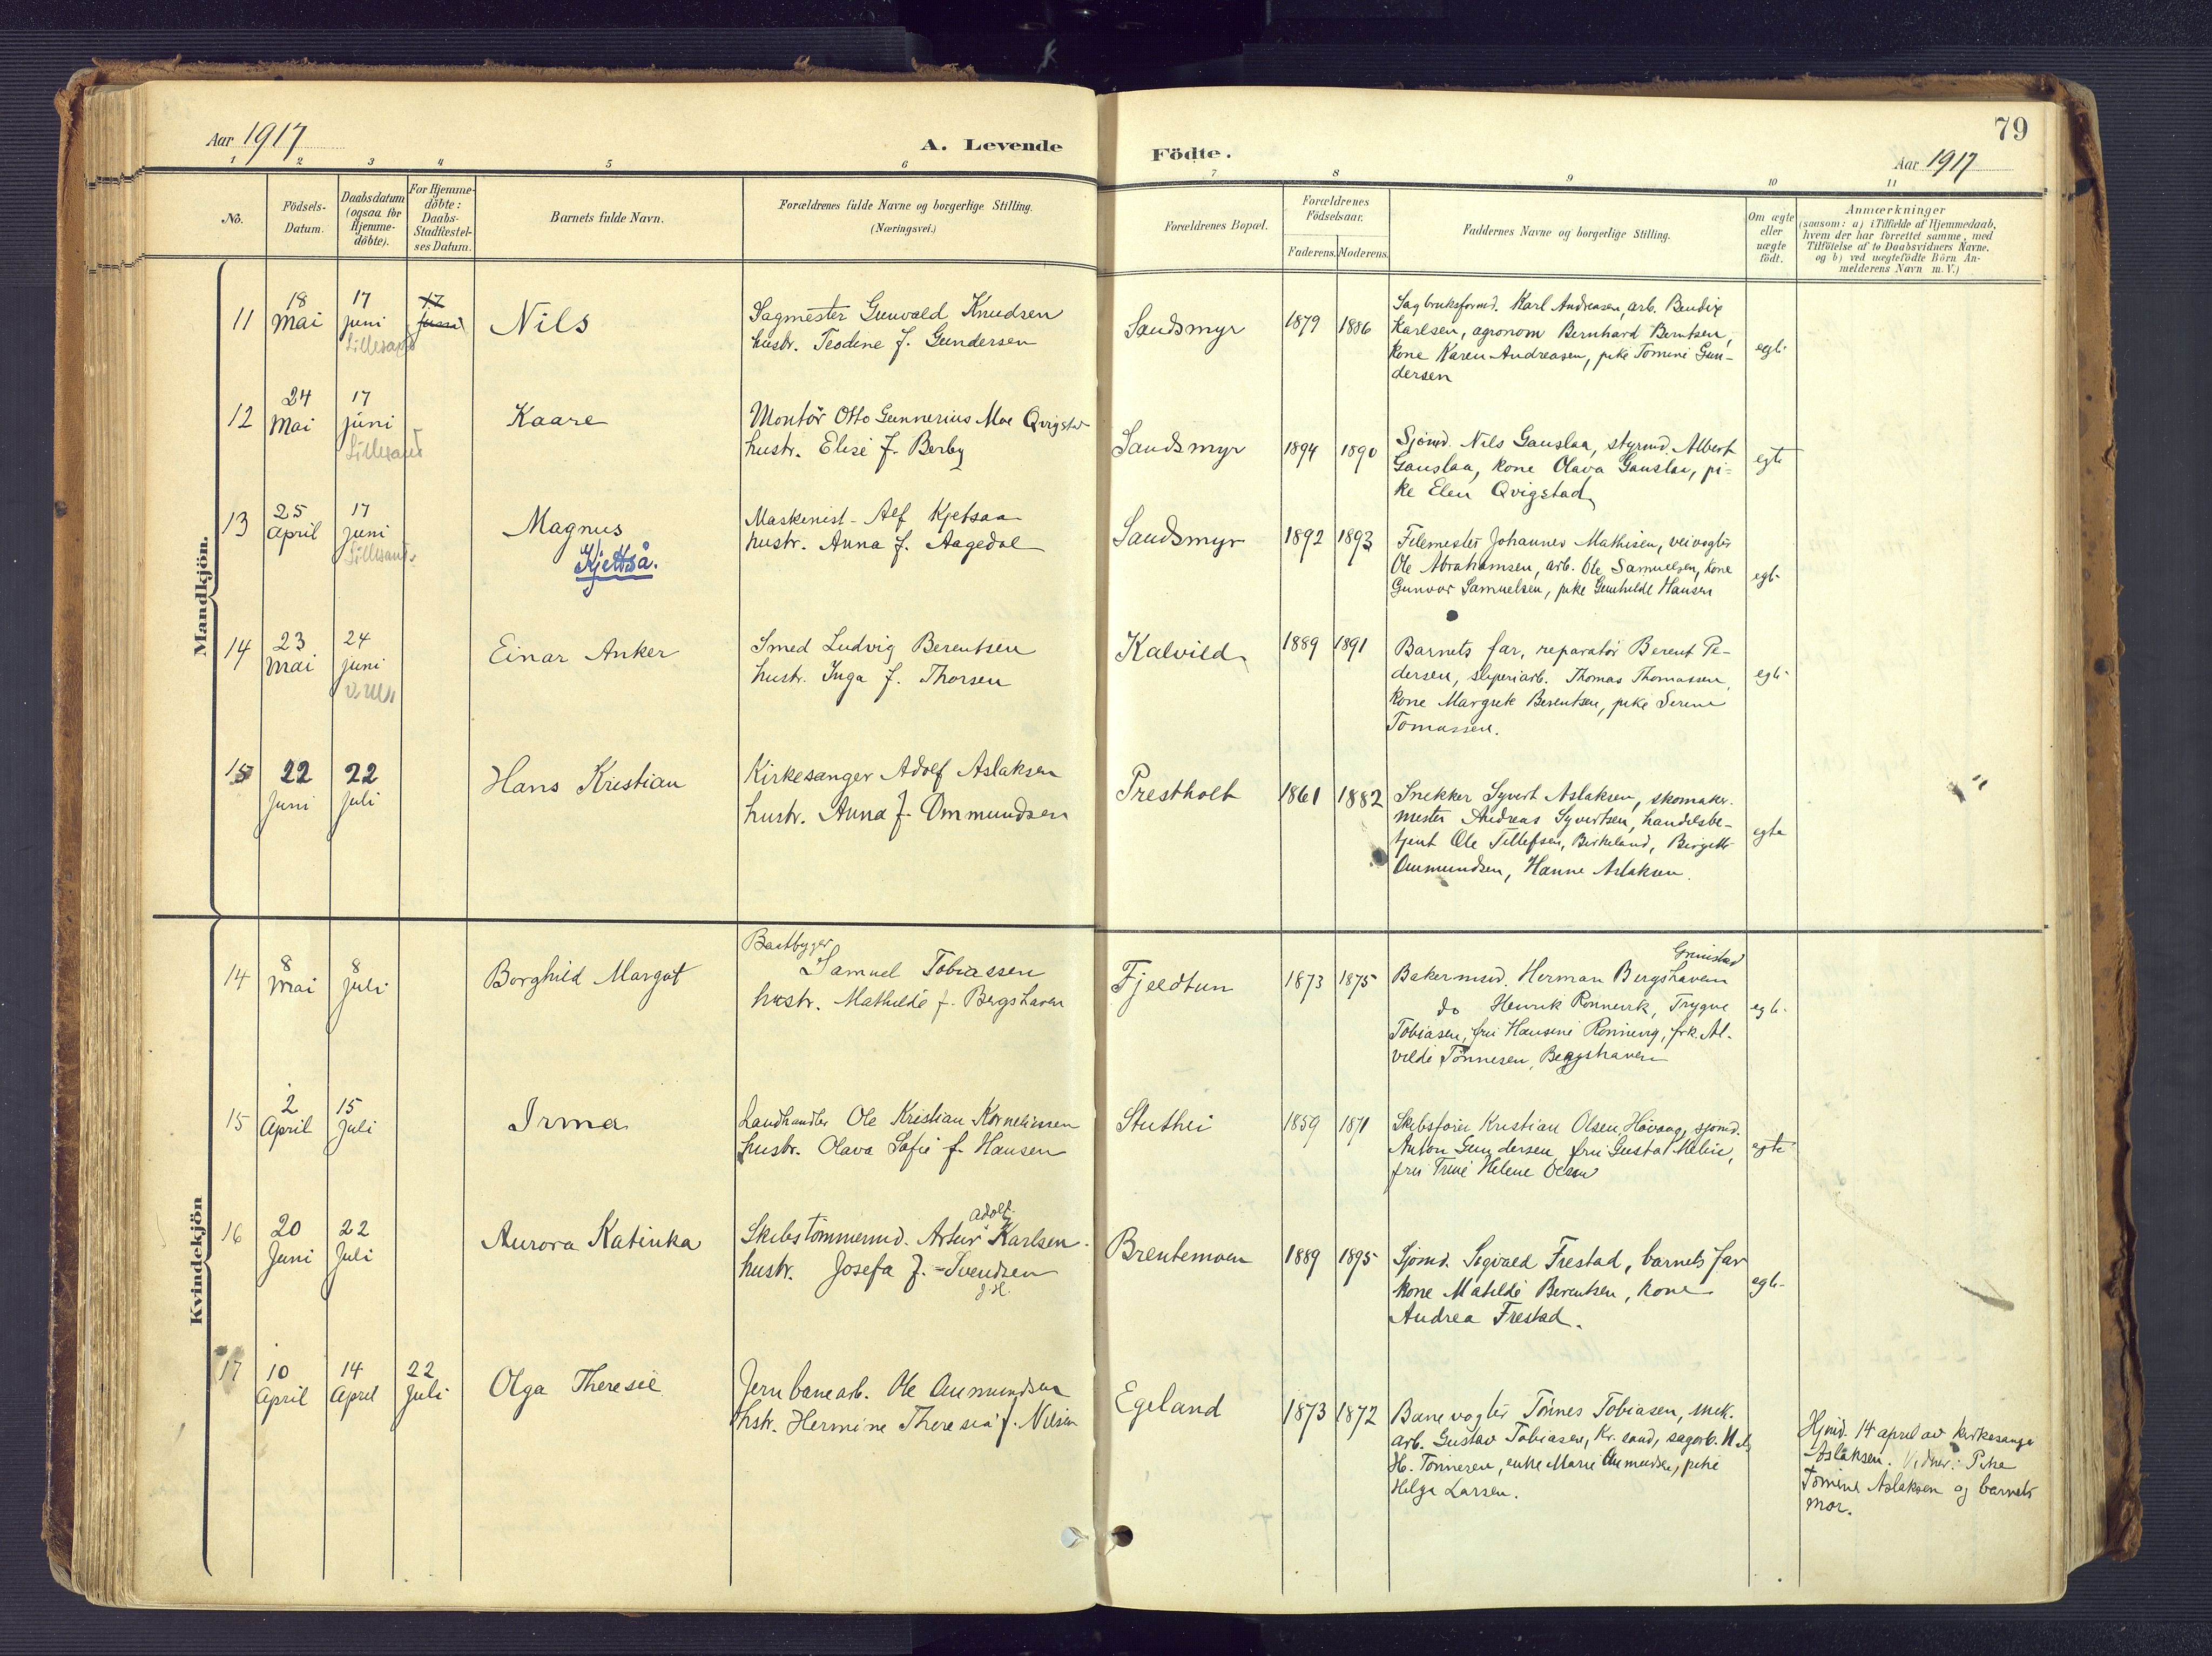 Aar 1917
A. Levende
Födte.
79
Aar 1917
1 2 3 4 5 6 7 8 9 10 11
No.
Födsels-
Datum.
Daabsdatum
(ogsaa for
Hjemme-
döbte).
For Hjemme-
döbte:
Daabs-
Stadfæstel-
ses Datum.
Barnets fulde Navn.
Forældrenes fulde Navne og borgerlige Stilling.
(Næringsvei.)
Forældrenes Bopæl.
Forældrenes
Födselsaar.
Faderens. Moderens.
Faddernes Navne og borgerlige Stilling.
Om ægte
eller
uægte
födt.
Anmærkninger
(saasom: a) i Tilfælde af Hjemmedaab,
hvem der har forrettet samme, med
Tilföielse af to Daabsvidners Navne.
og b) ved uægtefödte Börn An-
melderens Navn m. V.)
Mandkjön.
11
18
Mai
17
juni
Lillesand
17
juni
Nils
Sagmester Gunvald Knudsen
hustr. Teodine f. Gundersen
Sandsmyr
1879 1886
Sagbruksformd. Karl Andreasen, arb. Bendix
Karlsen, agronom Bernhard Berntsen,
kone Karen Andreasen, pike Tomine Gun-
dersen
egt.
12
24
Mai
17
juni
Lillesand
Kaare
Montör Otto Gunnerius Moe Qvigstad
hustr. Elise f. Berby
Sandsmyr
1894 1890
Sjömd. Nils Gauslaa, styrmd. Albert
Gauslaa, kone Olava Gauslaa, pi-
ke Elen Qvigstad
egte
13
25
April
17
juni
Lillesand
Magnus
Kjettså.
Maskinist Alf Kjetsaa
hustr. Anna f. Aagedal
Sandsmyr
1892 1893
Filemester Johannes Mathisen, veivogter
Ole Abrahamsen, arb. Ole Samuelsen, kone
Gunvor Samuelsen, pike Gunhilde Hansen
egt.
14
23
Mai
24
juni
Einar Anker
Smed Ludvig Berentsen
hustr. Inga f. Thorsen
Kalvild
1889 1891
Barnets far, reparatör Berent Pe-
dersen, sliperiarb. Thomas Thomassen,
kone Margrete Berentsen, pike Serine
Tomassen.
egt.
15
22
Juni
22
Juli
Hans Kristian
Kirkesanger Adolf Aslaksen
hustr. Anna f. Ommundsen
Prestholt
1861 1882
Snekker Syvert Aslaksen, skomaker-
mester Andreas Syvertsen, handelsbe-
tjent Ole Tellefsen, Birkeland, Birgitte
Ommundsen, Hanne Aslaksen.
egte
Kvindekjön
14
8
Mai
8
Juli
Borghild Margot
Baatbygger
Samuel Tobiassen
hustr. Mathilde f. Bergshaven
Fjeldtun
1873 1875
Grimstad
Bakermsd. Herman Bergshaven
do Henrik Ronnevik, Trygve
Tobiasen, fru Hansine Ronnevig, frk. Al-
vilde Tönnesen, Bergshaven
egt.
15
2
April
15
Juli
Irma
Landhandler Ole Kristian Korneliussen
hustr. Olava Sofie f. Hansen
Stuthei
1859 1871
Skibsförer Kristian Olsen, Hövaag, sjömd.
Anton Gundersen, fru Gusta Melie,
fru Trine Helene Olsen
egte
16
20
Juni
22
Juli
Aurora Katinka
Adolf
Skibstömmermd. Artur Karlsen
hustr. Josefa f. Svendsen
Brentemoen
1889 1895
Sjömd. Sigvald Frestad, barnets far
kone Matilde Berentsen, kone
Andrea Frestad.
egt.
17
10
April
14
April
22
Juli
Olga Theresie
Jernbanearb. Ole Ommundsen
hstr. Hermine Theresia f. Nilsen
Egeland
1873 1872
Banevogter Tönnes Tobiasen, mek.
arb. Gustav Tobiasen, Kr.sand, sagarb. Nils
H. Tönnesen, enke Marie Ommundsen, pike
Helga Larsen.
Hjmd. 14 april av kirkesanger
Aslaksen. Vidner: Pike
Tomine Aslaksen og barnets
mor.